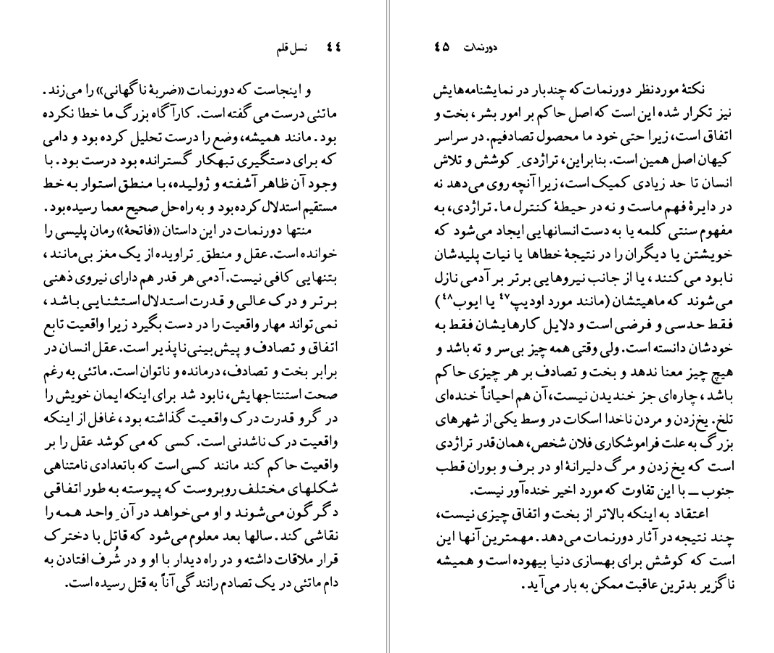 ۴۴ نسل قلم
و اینجاست که دورنمات «ضربهٔ ناگهانی» را می‌زند.
ماتئی درست می‌گفته است. کارآگاه بزرگ ما خطا نکرده
بود. مانند همیشه، وضع را درست تحلیل کرده بود و دامی
که برای دستگیری تبهکار گسترانده بود درست بود. با
وجود آن ظاهر آشفته و ژولیده، با منطق استوار به خط
مستقیم استدلال کرده بود و به راه‌حل صحیح معما رسیده بود.
منتها دورنمات در این داستان «فاتحهٔ» رمان پلیسی را
خوانده است. عقل و منطقِ تراویده از یک مغز بی‌مانند،
بتنهایی کافی نیست. آدمی هر قدر هم دارای نیروی ذهنی
برتر و درک عالی و قدرت استدلال استثنایی باشد،
نمی‌تواند مهار واقعیت را در دست بگیرد زیرا واقعیت تابع
اتفاق و تصادف و پیش‌بینی‌ناپذیر است. عقل انسان در
برابر بخت و تصادف، درمانده و ناتوان است. ماتئی به رغم
صحت استنتاجهایش، نابود شد برای اینکه ایمان خویش را
در گرو قدرت درک واقعیت گذاشته بود، غافل از اینکه
واقعیت درک ناشدنی است. کسی که می‌کوشد عقل را بر
واقعیت حاکم کند مانند کسی است که باتعدادی نامتناهی
شکلهای مختلف روبروست که پیوسته به طور اتفاقی
دگرگون می‌شوند و او می‌خواهد در آنِ واحد همه را
نقاشی کند. سالها بعد معلوم می‌شود که قاتل با دخترک
قرار ملاقات داشته و در راه دیدار با او و در شُرف افتادن به
دام ماتئی در یک تصادم رانندگی آناً به قتل رسیده است.
دورنمات ۴۵
نکتهٔ موردنظر دورنمات که چندبار در نمایشنامه‌هایش
نیز تکرار شده این است که اصل حاکم بر امور بشر، بخت و
اتفاق است، زیرا حتی خود ما محصول تصادفیم. در سراسر
کیهان اصل همین است. بنابراین، تراژدیِ کوشش و تلاش
انسان تا حد زیادی کمیک است، زیرا آنچه روی می‌دهد نه
در دایرهٔ فهم ماست و نه در حیطهٔ کنترل ما. تراژدی، به
مفهوم سنتی کلمه یا به دست انسانهایی ایجاد می‌شود که
خویشتن یا دیگران را در نتیجهٔ خطاها یا نیات پلیدشان
نابود می‌کنند، یا از جانب نیروهایی برتر بر آدمی نازل
می‌شوند که ماهیتشان (مانند مورد اودیپ۴۷ یا ایوب۴۸)
فقط حدسی و فرضی است و دلایل کارهایشان فقط به
خودشان دانسته است. ولی وقتی همه چیز بی‌سر و ته باشد و
هیچ چیز معنا ندهد و بخت و تصادف بر هر چیزی حاکم
باشد، چاره‌ای جز خندیدن نیست، آن هم احیاناً خنده‌ای
تلخ. یخ‌زدن و مردن ناخدا اسکات در وسط یکی از شهرهای
بزرگ به علت فراموشکاری فلان شخص، همان‌قدر تراژدی
است که یخ زدن و مرگ دلیرانهٔ او در برف و بوران قطب
جنوب ــ با این تفاوت که مورد اخیر خنده‌آور نیست.
اعتقاد به اینکه بالاتر از بخت و اتفاق چیزی نیست،
چند نتیجه در آثار دورنمات می‌دهد. مهمترین آنها این
است که کوشش برای بهسازی دنیا بیهوده است و همیشه
ناگزیر بدترین عاقبت ممکن به بار می‌آید.